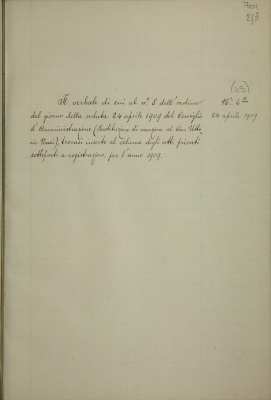 701
233
(45)
Il verbale di cui al n.° 5 dell'ordine
N.° 6
del giorno della seduta 24 aprile 1909 del Consiglio
24 aprile 1909
d'Amministrazione (Restituzione di cauzione al Cav. Vitto-
rio), trovasi inserto al volume degli atti privati
sottoposti a registrazione, per l'anno 1909.